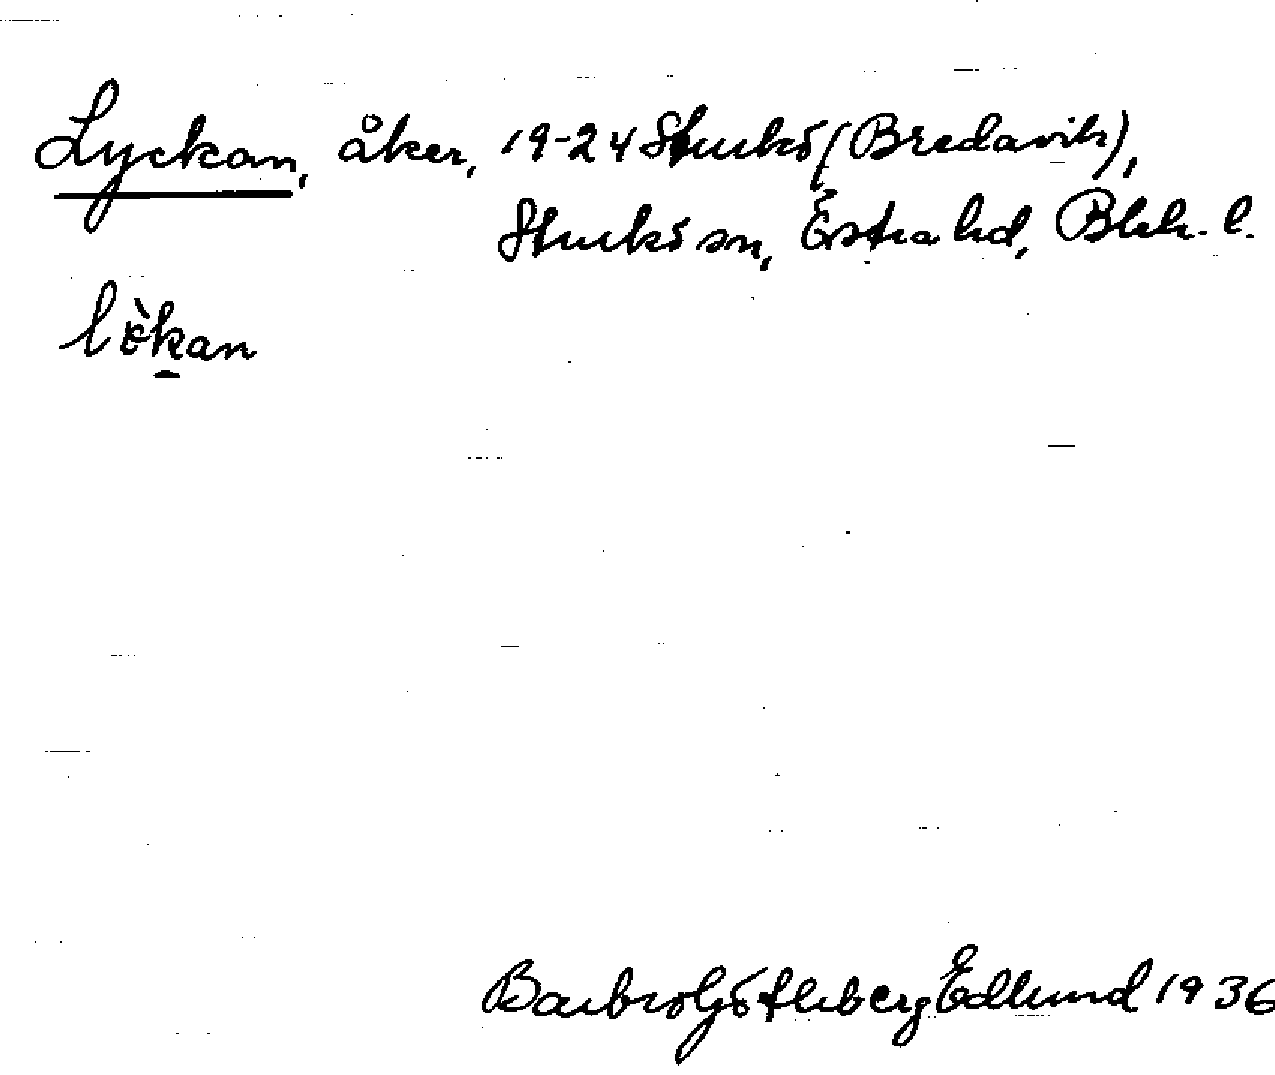 Lyckan, åker, 19-24 Sturkö (Bredavik),
Sturkö sn, Östra hd, Blek. l.
lökan
Barbro Götleberg Edlund 1936